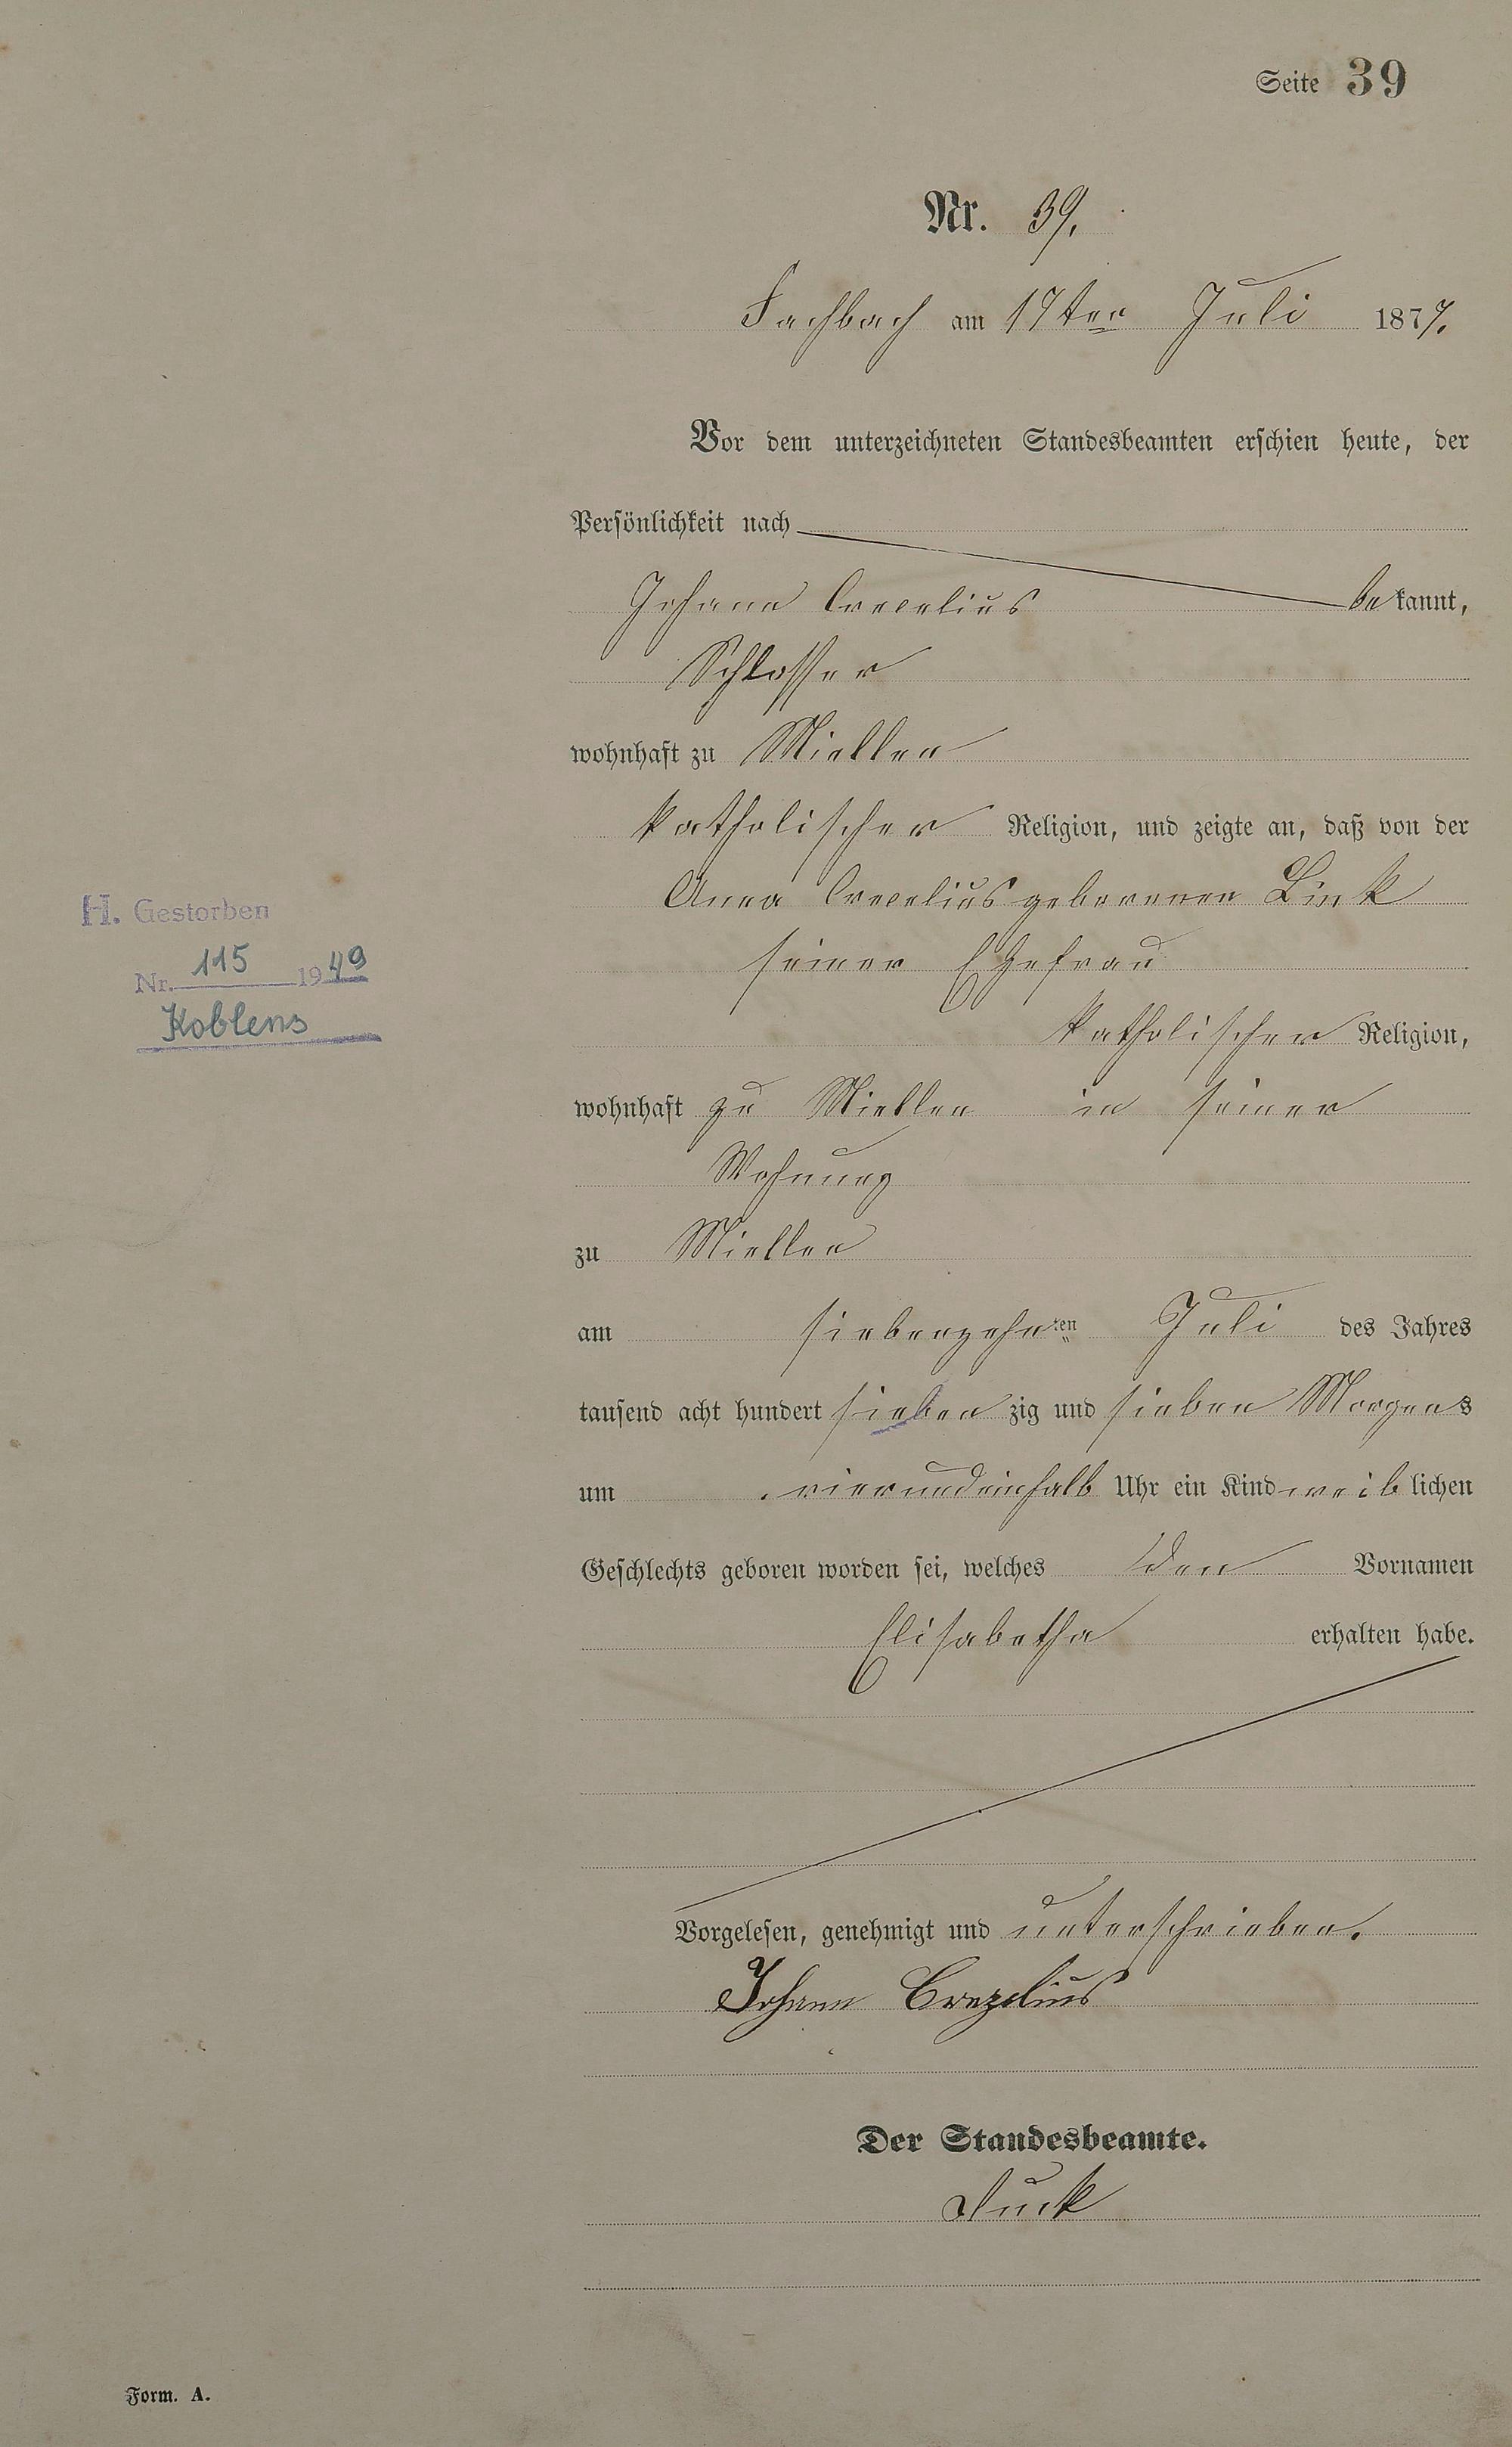 Seite 39
Nr. 39.
Fachbach am 17ten Juli 1877.
Vor dem unterzeichneten Standesbeamten erschien heute, der
Persönlichkeit nach
Johann Crecelius bekannt,
Schlosser
wohnhaft zu Miellen
katholischer Religion, und zeigte an, daß von der
Anna Crecelius geborenen Link
seiner Ehefrau
H. Gestorben
Nr. 115 1949
Koblenz
katholischer Religion,
wohnhaft zu Miellen in seiner
Wohnung
zu Miellen
am siebenzehnten Juli des Jahres
tausend acht hundert siebenzig und sieben Morgens
um vierundeinhalb Uhr ein Kind weiblichen
Geschlechts geboren worden sei, welches den Vornamen
Elisabetha erhalten habe.
Vorgelesen, genehmigt und unterschrieben.
Johann Crezelius
Der Standesbeamte.
Form. A.